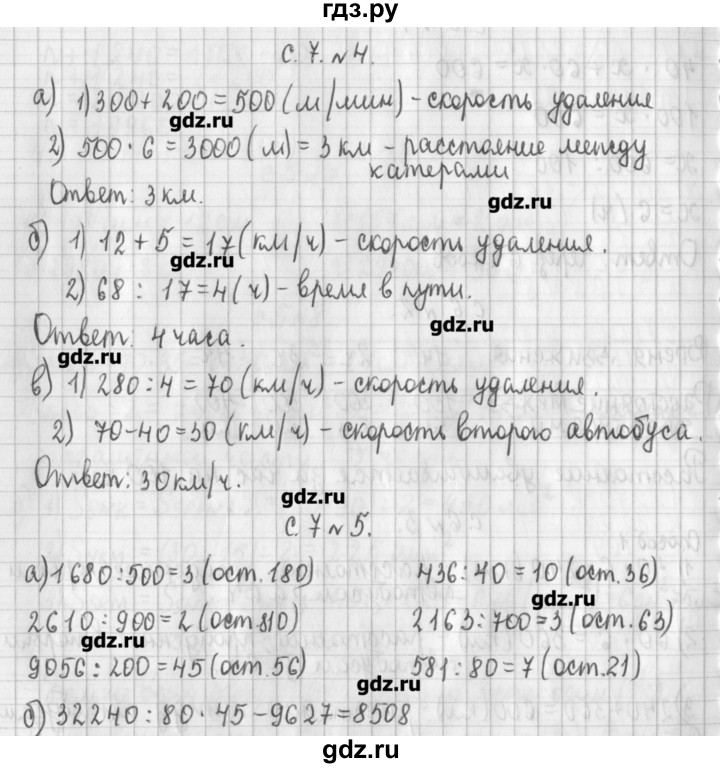 гдз.ру
с. 7. №4.
а) 1) 300 + 200 = 500 (м/мин) - скорость удаления
gdz.ru
2) 500 · 6 = 3000 (м) = 3 км - расстояние между
катерами
Ответ: 3 км.
gdz.ru
б) 1) 12 + 5 = 17 (км/ч) - скорость удаления.
gdz.ru
2) 68 : 17 = 4 (ч) - время в пути.
gdz.ru
Ответ: 4 часа.
gdz.ru
в) 1) 280 : 4 = 70 (км/ч) - скорость удаления.
2) 70 - 40 = 30 (км/ч) - скорость второго автобуса.
Ответ: 30 км/ч.
gdz.ru
с. 7 №5.
а) 1680 : 500 = 3 (ост. 180) 436 : 40 = 10 (ост. 36)
gdz.ru
2610 : 900 = 2 (ост. 810) 2163 : 700 = 3 (ост. 63)
gdz.ru
9056 : 200 = 45 (ост. 56) 581 : 80 = 7 (ост. 21)
gdz.ru
б) 32240 : 80 · 45 - 9627 = 8508
gdz.ru